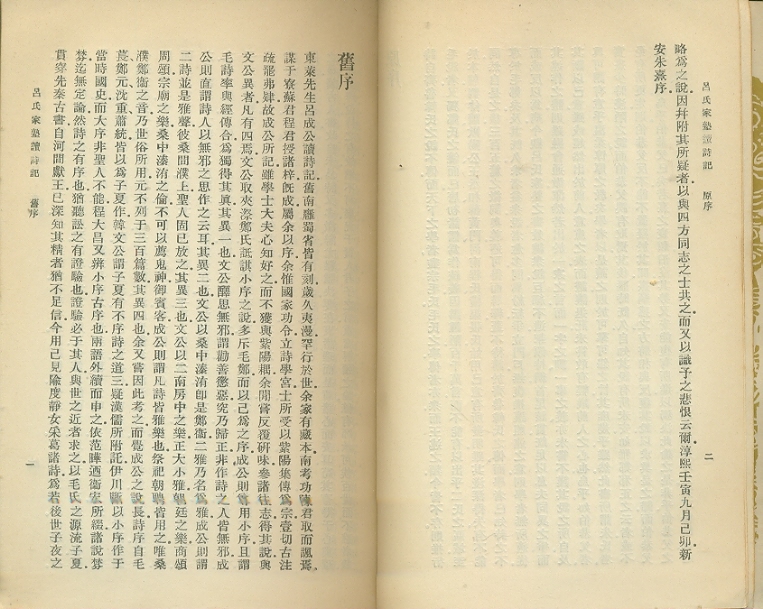 呂氏家塾讀詩記　原序
略爲之說因幷附其所疑者以與四方同志之士共之而又以識予之悲恨云爾淳熙壬寅九月己卯新
安朱熹序
二
舊序
東萊先生呂成公讀詩記舊南雍蜀省皆有刻歲久夷漫罕行於世余家有藏本南考功陳君取而諷焉
謀于寮蘇君程君授諸梓旣成屬余以序余惟國家功令立詩學宮士所受以紫陽集傳爲宗壹切古注
疏罷弗肄故成公所記雖學士大夫心知好之而不獲與紫陽耦余閒嘗反覆硏味參諸往志得其說與
文公異者凡有四焉文公取夾漈鄭氏詆諆小序之說多斥毛鄭而以己爲之序成公則尊用小序且謂
毛詩率與經傳合爲獨得其眞其異一也文公釋思無邪謂勸善懲惡究乃歸正非作詩之人皆無邪成
公則直謂詩人以無邪之思作之云耳其異二也文公以桑中溱洧卽是鄭衞二雅乃名爲雅成公則謂
二詩並是雅聲彼桑間濮上聖人固已放之其異三也文公以二南房中之樂正大小雅朝廷之樂商頌
周頌宗廟之樂桑中溱洧之倫不可以薦鬼神御賓客成公則謂凡詩皆雅樂也祭祀朝聘皆用之唯桑
濮鄭衞之音乃世俗所用元不列于三百篇數其異四也余又嘗因此考之而覺成公之說長詩序自毛
萇鄭元沈重蕭統皆以爲子夏作韓文公謂子夏有不序詩之道三疑漢儒所附託伊川則以小序作于
當時國史而大序非聖人不能程大昌又辨小序古序也兩語外續而申之依范曄迺衞宏所綴諸說棼
棼迄無定論然詩之有序也猶聽訟之有證驗也證驗必于其人與世之近者求之以毛氏之源流子夏
貫穿先秦古書自河間獻王已深知其精者猶不足信今用己見隃度靜女采葛諸詩爲若後世子夜之
呂氏家塾讀詩記　舊序
一